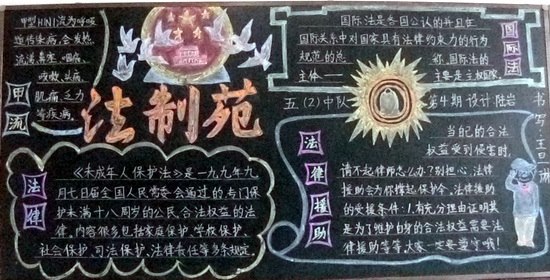 甲型H1N1流为呼吸
道传染病,会发热
流涕鼻塞,咽痛
咳嗽、头痛
肌痛、乏力
等疾病。
甲流
法制苑
国际法是各国公认的并且在
国际关系中对国家具有法律约束力的行为
规范的总称,国际法的
主体——主要是主权国家
国际法
五.(2)中队
第4期 设计 陆岩
书写:王
法律
《未成年人保护法》是一九九一年九
月七日届全国人民常委会通过的专门保
护未满十八周岁的公民,合法权益的法
律。内容很多包括家庭保护、学校保护、
社会保护、司法保护、法律责任等多条规定。
法律援助
当自己的合法
权益受到侵害时,
请不起律师怎么办?别担心,法律
援助会为你撑起保护伞,法律援助
的受援条件:1.有充分理由证明其
是为了维护自身的合法权益需要法
律援助等等,大家一定要遵守哦!